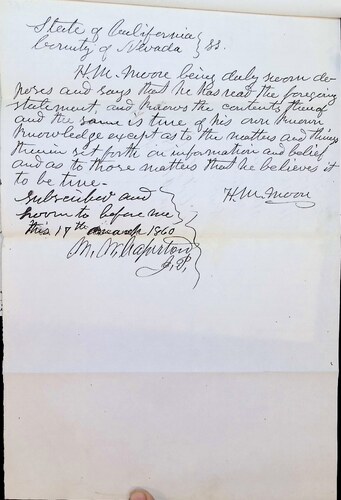 State of California }
County of Nevada } SS.
H. M. Moore being duly sworn de
poses and says that he has read the foregoing
statement and knows the contents thereof
and the same is true of his own known
knowledge except as to the matters and things
therein set forth on information and belief
and as to those matters that he believes it
to be true.
Subscribed and } H. M. Moore
sworn to before me
this 17th March 1860
J. P.